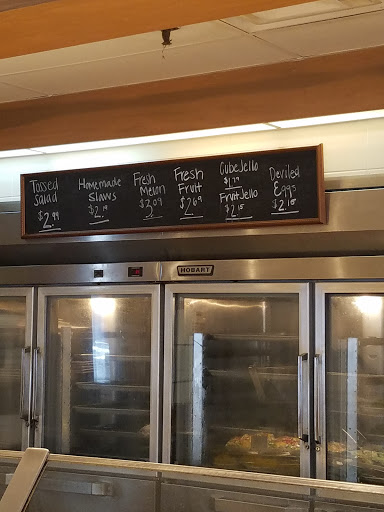 Tossed
Salad
$2.99
Homemade
Slaws
$2.19
Fresh
Melon
$3.09
Fresh
Fruit
$2.69
Cube Jello
$1.79
Fruit Jello
$2.15
Deviled
Eggs
$2.15
HOBART